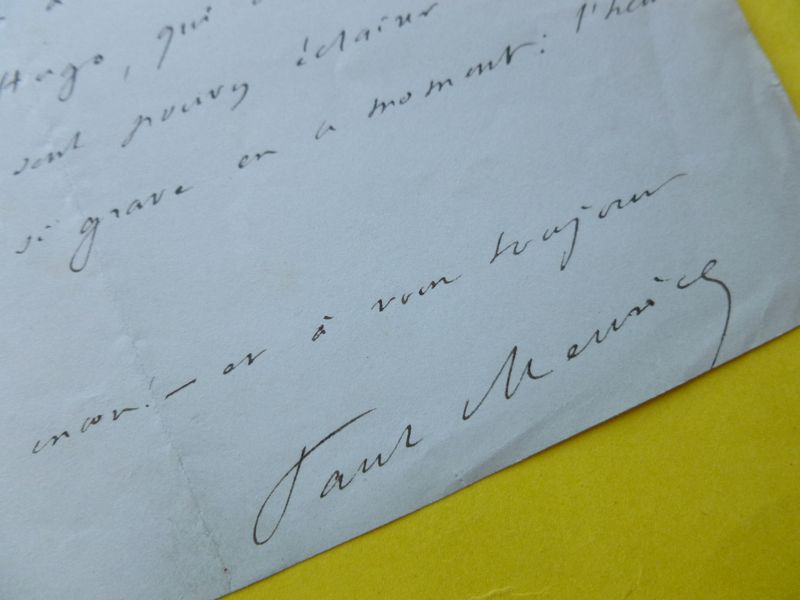 à
Hugo, qui
sont pouvoy éclairer
si grave en ce moment: l'heu
encor! — et à vous toujours
Paul Meurice